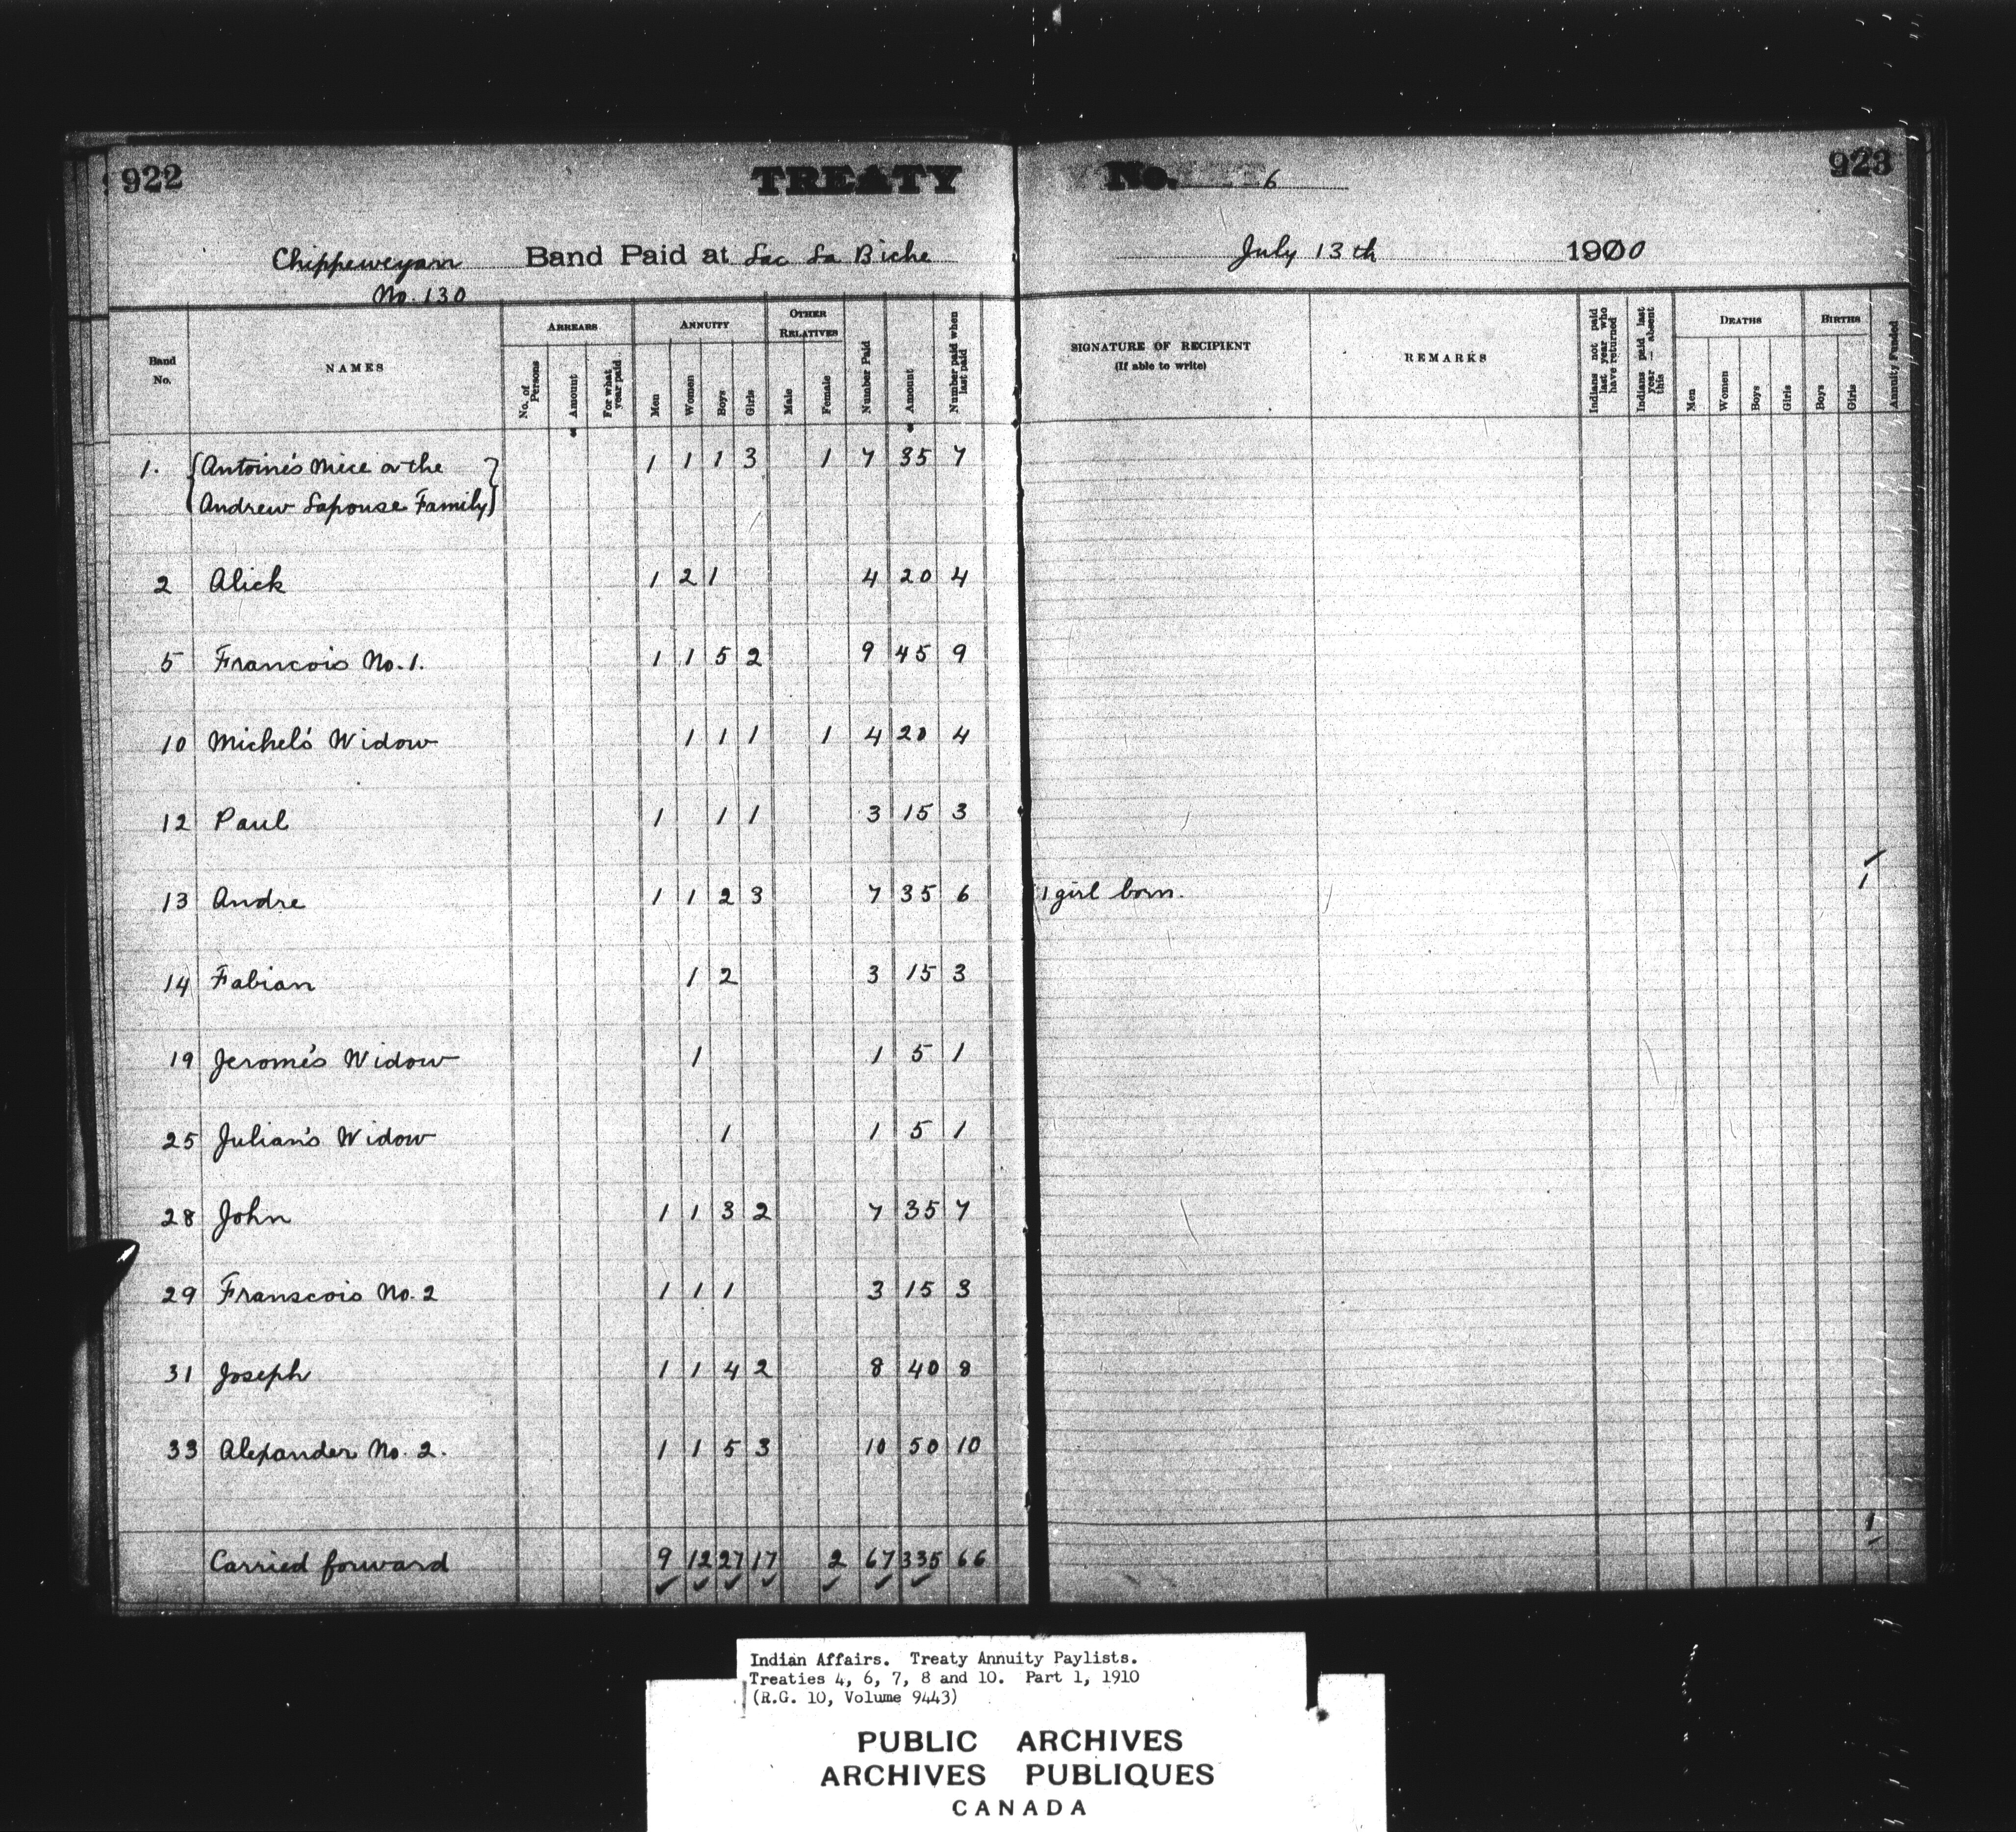 922 TREATY No. 6 923
Chippeweyan Band Paid at Lac La Biche July 13th 1900
No. 130
Band No. NAMES ARREARS ANNUITY OTHER RELATIVES Number Paid Amount Number paid when last paid SIGNATURE OF RECIPIENT (If able to write) REMARKS Indians not paid last year who have returned Indians paid last year — absent this DEATHS BIRTHS Annuity Funded
No. of Persons Amount For what year paid Men Women Boys Girls Male Female Men Women Boys Girls Boys Girls
1. Antoine's Niece or the 1 1 1 3 1 7 35 7
Andrew Lapouse Family
2 Alick 1 2 1 4 20 4
5 Francois No. 1. 1 1 5 2 9 45 9
10 Michel's Widow 1 1 1 1 4 20 4
12 Paul 1 1 1 3 15 3
13 Andre 1 1 2 3 7 35 6 1 girl born. 1
14 Fabian 1 2 3 15 3
19 Jerome's Widow 1 1 5 1
25 Julian's Widow 1 1 5 1
28 John 1 1 3 2 7 35 7
29 Franscois No. 2 1 1 1 3 15 3
31 Joseph 1 1 4 2 8 40 8
33 Alexander No. 2. 1 1 5 3 10 50 10
1
Carried forward 9 12 27 17 2 67 335 66
Indian Affairs. Treaty Annuity Paylists.
Treaties 4, 6, 7, 8 and 10. Part 1, 1910
(R.G. 10, Volume 9443)
PUBLIC ARCHIVES
ARCHIVES PUBLIQUES
CANADA